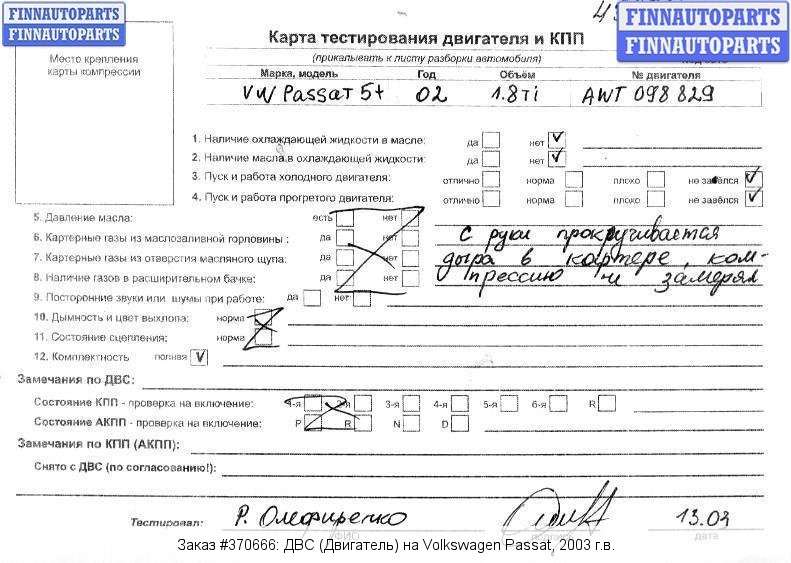 FINNAUTOPARTS
FINNAUTOPARTS
FINNAUTOPARTS
FINNAUTOPARTS
Место крепления
карты компрессии
Карта тестирования двигателя и КПП
(прикалывать к листу разборки автомобиля)
Марка, модель Год Объём № двигателя
VW Passat 5+ 02 1.8Ti AWT 098829
1. Наличие охлаждающей жидкости в масле: да нет V
2. Наличие масла в охлаждающей жидкости: да нет V
3. Пуск и работа холодного двигателя: отлично норма плохо не завёлся V
4. Пуск и работа прогретого двигателя: отлично норма плохо не завёлся V
5. Давление масла: есть нет
6. Картерные газы из маслозаливной горловины : да нет
7. Картерные газы из отверстия масляного щупа: да нет
8. Наличие газов в расширительном бачке: да нет
с руки прокручивается
дыра в картере, ком-
прессию не замерял
9. Посторонние звуки или шумы при работе: да нет
10. Дымность и цвет выхлопа: норма
11. Состояние сцепления: норма
12. Комплектность полная V
Замечания по ДВС:
Состояние КПП - проверка на включение: 1-я 2-я 3-я 4-я 5-я 6-я R
Состояние АКПП - проверка на включение: P R N D
Замечания по КПП (АКПП):
Снято с ДВС (по согласованию!):
Тестировал: Р. Олефиренко 13.03
ФИО дата
Заказ #370666: ДВС (Двигатель) на Volkswagen Passat, 2003 г.в.